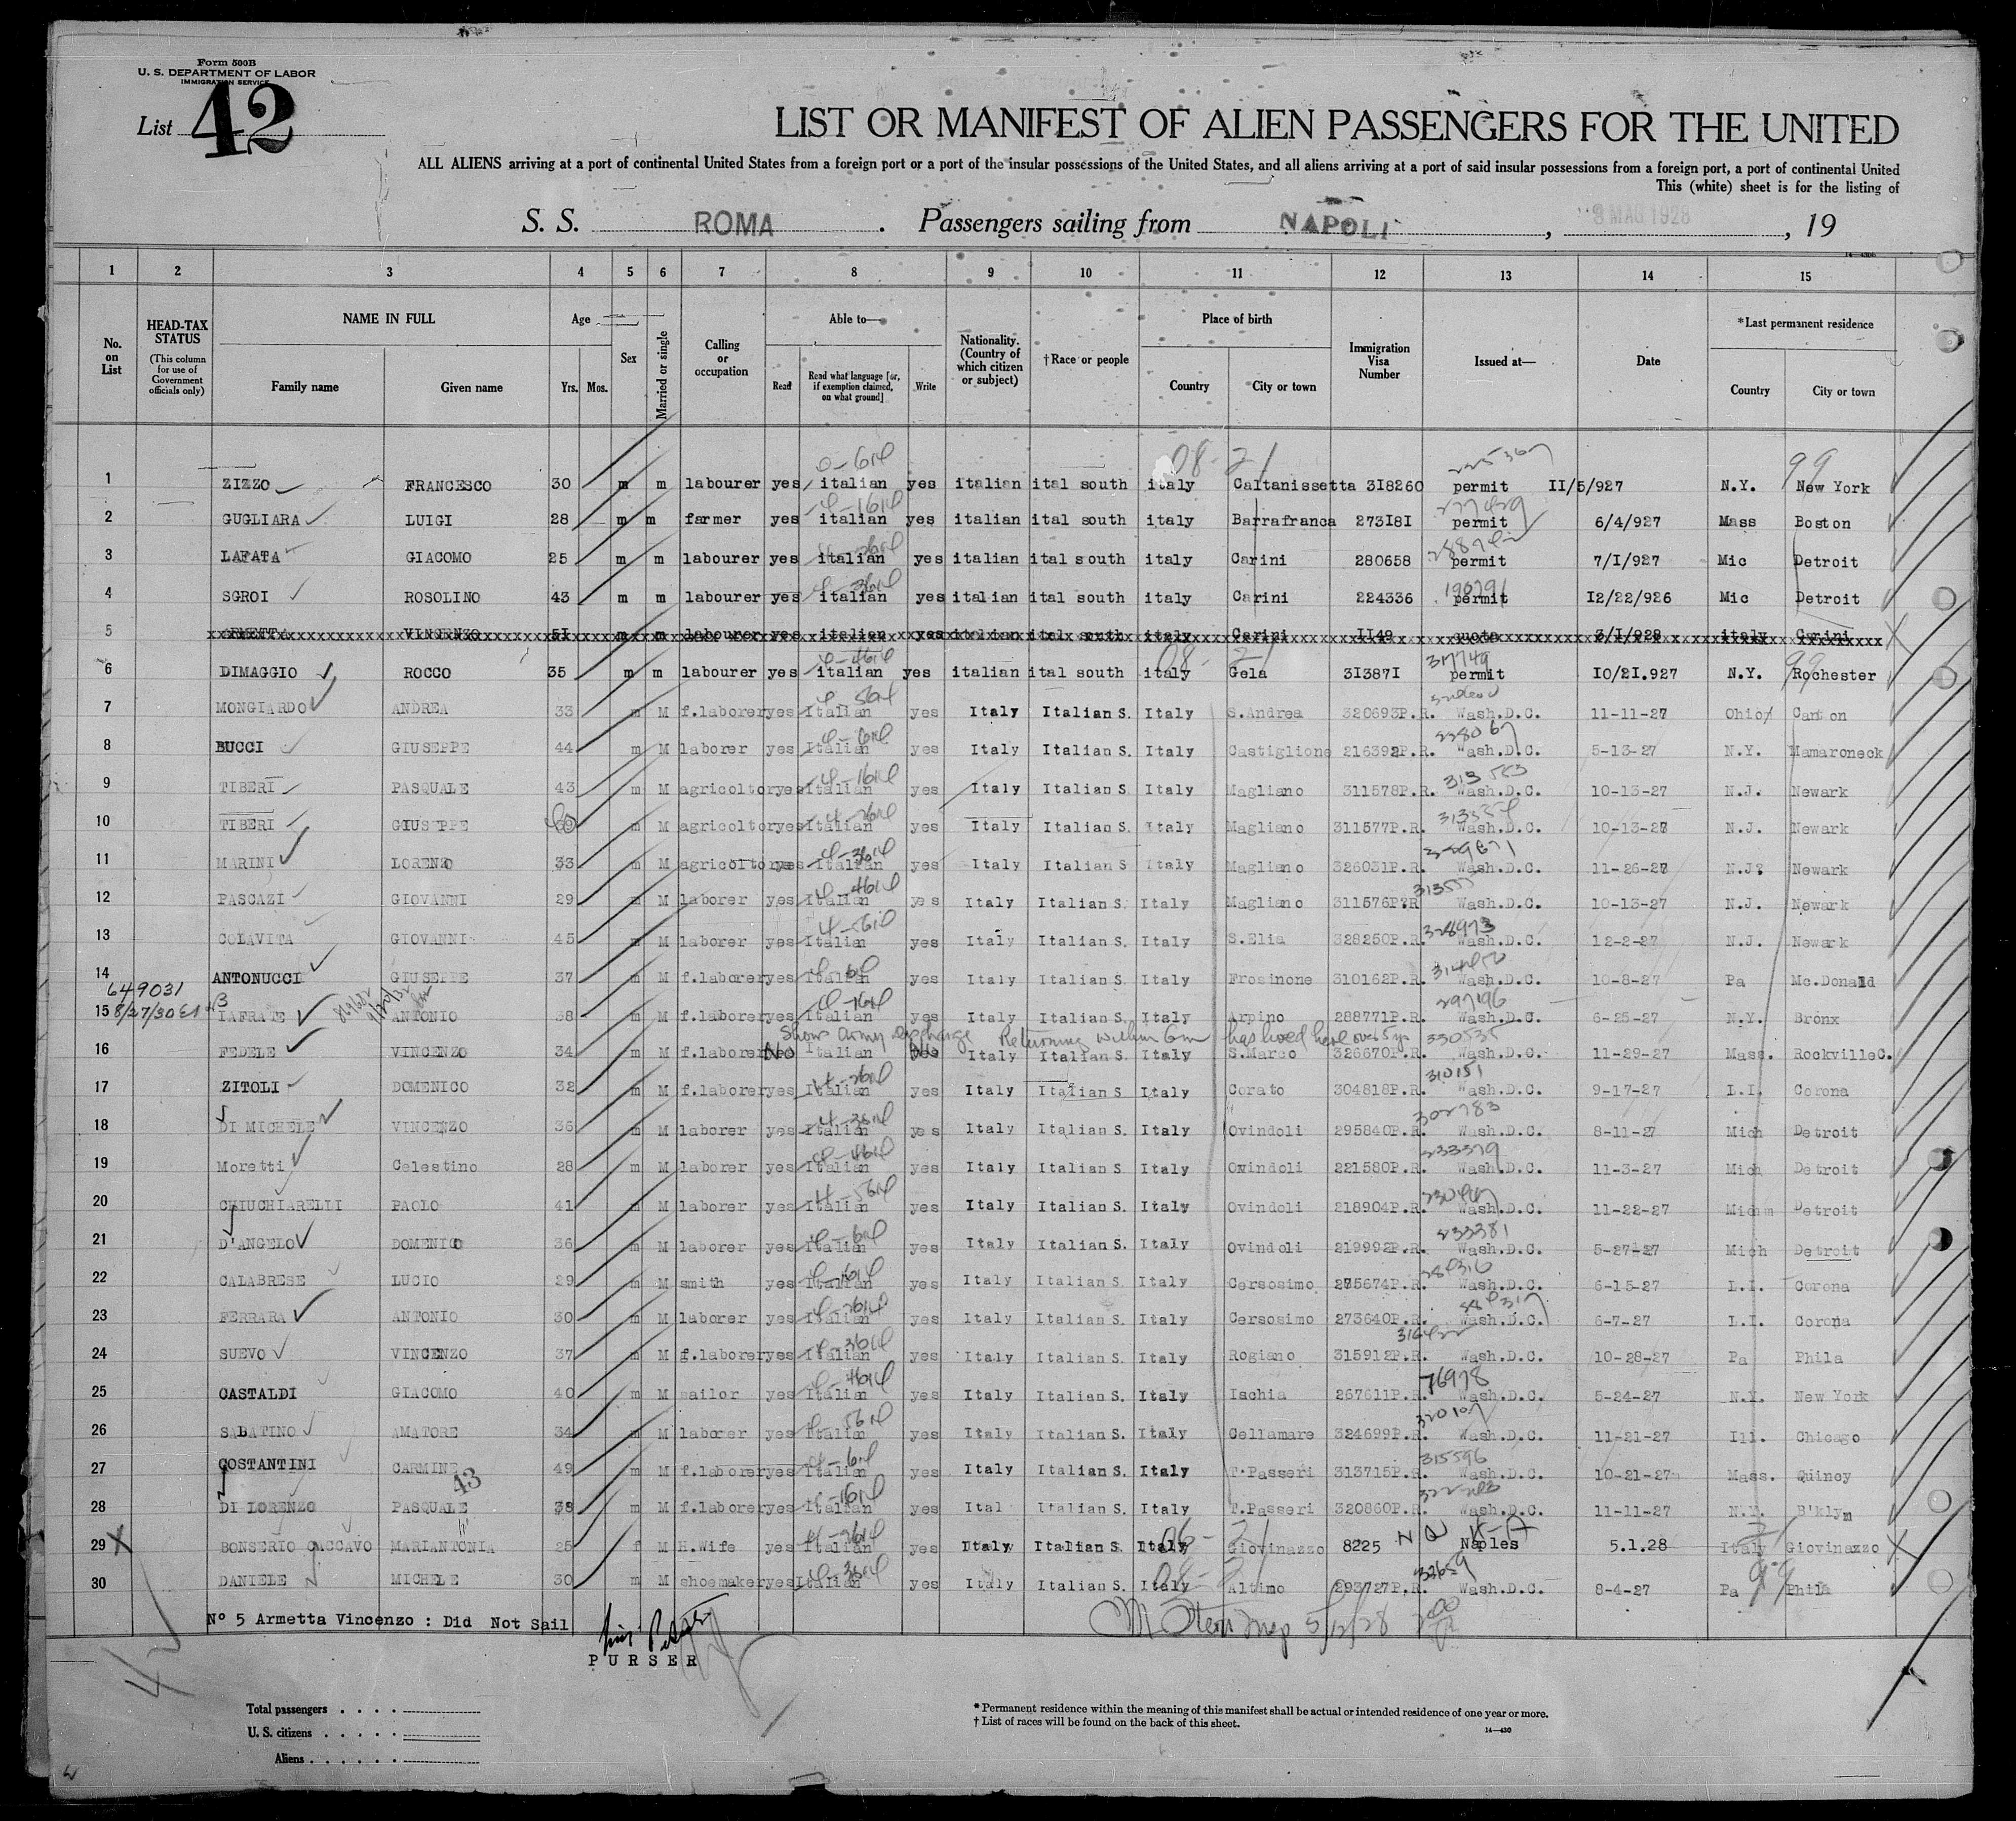 Form 500B
U. S. DEPARTMENT OF LABOR
IMMIGRATION SERVICE
List 42
LIST OR MANIFEST OF ALIEN PASSENGERS FOR THE UNITED
ALL ALIENS arriving at a port of continental United States from a foreign port or a port of the insular possessions of the United States, and all aliens arriving at a port of said insular possessions from a foreign port, a port of continental United
This (white) sheet is for the listing of
S. S. ROMA. Passengers sailing from NAPOLI, 8 MAG 1928, 19
1 2 3 4 5 6 7 8 9 10 11 12 13 14 15
No. on List
HEAD-TAX STATUS (This column for use of Government officials only)
NAME IN FULL Family name Given name
Age Yrs. Mos.
Sex
Married or single
Calling or occupation
Able to— Read Read what language [or, if exemption claimed, on what ground] Write
Nationality. (Country of which citizen or subject)
†Race or people
Place of birth Country City or town
Immigration Visa Number
Issued at—
Date
*Last permanent residence Country City or town
08-21 99
1 ZIZZO FRANCESCO 30 m m labourer yes italian yes italian ital south italy Caltanissetta 3I8260 permit II/5/927 N.Y. New York
2 GUGLIARA LUIGI 28 m m farmer yes italian yes italian ital south italy Barrafranca 273I8I permit 6/4/927 Mass Boston
3 LAFATA GIACOMO 25 m m labourer yes italian yes italian ital south italy Carini 280658 permit 7/I/927 Mic Detroit
4 SGROI ROSOLINO 43 m m labourer yes italian yes italian ital south italy Carini 224336 permit I2/22/926 Mic Detroit
5 ARMETTA VINCENZO 5I m m labourer yes italian yes italian ital south italy Carini II49 quota 3/I/928 italy Carini
6 DIMAGGIO ROCCO 35 m m labourer yes italian yes italian ital south italy Gela 3I387I 317749 permit IO/2I.927 N.Y. Rochester
7 MONGIARDO ANDREA 33 m M f.laborer yes Italian yes Italy Italian S. Italy S.Andrea 320693P.R. Wash.D.C. 11-11-27 Ohio Canton
8 BUCCI GIUSEPPE 44 m M laborer yes Italian yes Italy Italian S. Italy Castiglione 216392P.R. Wash.D.C. 5-13-27 N.Y. Mamaroneck
9 TIBERI PASQUALE 43 m M agricoltor yes Italian yes Italy Italian S. Italy Magliano 311578P.R. Wash.D.C. 10-13-27 N.J. Newark
10 TIBERI GIUSEPPE m M agricoltor yes Italian yes Italy Italian S. Italy Magliano 311577P.R. Wash.D.C. 10-13-27 N.J. Newark
11 MARINI LORENZO 33 m M agricoltor yes Italian yes Italy Italian S Italy Magliano 326031P.R. Wash.D.C. 11-26-27 N.J. Newark
12 PASCAZI GIOVANNI 29 m M laborer yes Italian yes Italy Italian S. Italy Magliano 311576P.R Wash.D.C. 10-13-27 N.J. Newark
13 COLAVITA GIOVANNI 45 m M laborer yes Italian yes Italy Italian S. Italy S.Elia 328250P.R. 328973 Wash.D.C. 12-2-27 N.J. Newark
14 ANTONUCCI GIUSEPPE 37 m M f.laborer yes Italian yes Italy Italian S. Italy Frosinone 310162P.R. Wash.D.C. 10-8-27 Pa Mc.Donald
649031
15 8/27/30 IAFRATE ANTONIO 38 m M f.laborer yes Italian yes Italy Italian S. Italy Arpino 288771P.R. 297196 Wash.D.C. 6-25-27 N.Y. Bronx
Shows Army discharge Returning within 6m has lived here over 5 yr
16 FEDELE VINCENZO 34 m M f.laborer No Italian No Italy Italian S. Italy S.Marco 326670P.R. 330535 Wash.D.C. 11-29-27 Mass. RockvilleC.
17 ZITOLI DOMENICO 32 m M f.laborer yes Italian yes Italy Italian S Italy Corato 304818P.R. 310151 Wash.D.C. 9-17-27 L.I. Corona
18 DI MICHELE VINCENZO 36 m M laborer yes Italian yes Italy Italian S. Italy Ovindoli 295840P.R. 302783 Wash.D.C. 8-11-27 Mich Detroit
19 Moretti Celestino 28 m M laborer yes Italian yes Italy Italian S. Italy Ovindoli 221580P.R. 233379 Wash.D.C. 11-3-27 Mich Detroit
20 CHIUCHIARELLI PAOLO 41 m M laborer yes Italian yes Italy Italian S. Italy Ovindoli 218904P.R. Wash.D.C. 11-22-27 Mich Detroit
21 D'ANGELO DOMENICO 36 m M laborer yes Italian yes Italy Italian S. Italy Ovindoli 219992P.R. 233381 Wash.D.C. 5-27-27 Mich Detroit
22 CALABRESE LUCIO 29 m M smith yes Italian yes Italy Italian S. Italy Cersosimo 275674P.R. Wash.D.C. 6-15-27 L.I. Corona
23 FERRARA ANTONIO 30 m M laborer yes Italian yes Italy Italian S. Italy Cersosimo 273640P.R. Wash.D.C. 6-7-27 L.I. Corona
24 SUEVO VINCENZO 37 m M f.laborer yes Italian yes Italy Italian S. Italy Rogiano 315912P.R. Wash.D.C. 10-28-27 Pa Phila
25 CASTALDI GIACOMO 40 m M sailor yes Italian yes Italy Italian S. Italy Ischia 267611P.R. 76978 Wash.D.C. 5-24-27 N.Y. New York
26 SABATINO AMATORE 34 m M laborer yes Italian yes Italy Italian S. Italy Cellamare 324699P.R. 320107 Wash.D.C. 11-21-27 Ill. Chicago
27 COSTANTINI CARMINE 49 m M f.laborer yes Italian yes Italy Italian S. Italy T.Passeri 313715P.R. 315596 Wash.D.C. 10-21-27 Mass. Quincy
43
28 DI LORENZO PASQUALE 38 m M f.laborer yes Italian yes Ital Italian S. Italy T.Passeri 320860P.R. Wash.D.C. 11-11-27 N.Y. B'klyn
29 X BONSERIO CACCAVO MARIANTONIA 25 f M H.Wife yes Italian yes Italy Italian S. Italy Giovinazzo 8225 NQ Naples 5.1.28 Italy Giovinazzo
30 DANIELE MICHELE 30 m M shoemaker yes Italian yes Italy Italian S. Italy Altino 293727P.R. Wash.D.C. 8-4-27 Pa Phila
Nº 5 Armetta Vincenzo : Did Not Sail
PURSER
M Stern Insp 5/12/28
42
Total passengers
U. S. citizens
Aliens
* Permanent residence within the meaning of this manifest shall be actual or intended residence of one year or more.
† List of races will be found on the back of this sheet.
14—430